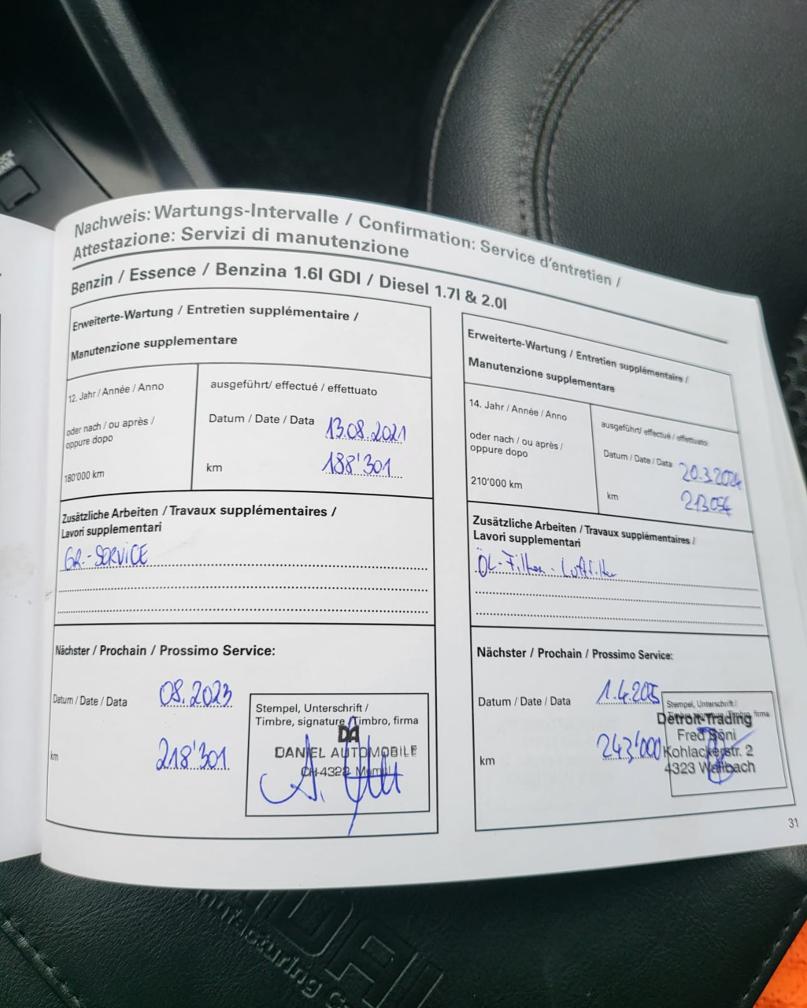 Nachweis: Wartungs-Intervalle / Confirmation: Service d'entretien /
Attestazione: Servizi di manutenzione
Benzin / Essence / Benzina 1.6l GDI / Diesel 1.7l & 2.0l
Erweiterte-Wartung / Entretien supplémentaire /
Manutenzione supplementare
12. Jahr / Année / Anno
oder nach / ou après /
oppure dopo
180'000 km
ausgeführt/ effectué / effettuato
Datum / Date / Data 13.08.2021
km 188'301
Zusätzliche Arbeiten / Travaux supplémentaires /
Lavori supplementari
GR.-SERVICE
Nächster / Prochain / Prossimo Service:
Datum / Date / Data 08.2023
km 218'301
Stempel, Unterschrift /
Timbre, signature / Timbro, firma
DA
DANIEL AUTOMOBILE
CH-4322
Erweiterte-Wartung / Entretien supplémentaire /
Manutenzione supplementare
14. Jahr / Année / Anno
oder nach / ou après /
oppure dopo
210'000 km
ausgeführt/ effectué / effettuato
Datum / Date / Data 20.3.2024
km 213054
Zusätzliche Arbeiten / Travaux supplémentaires /
Lavori supplementari
ÖL-Filter - Luftfilter
Nächster / Prochain / Prossimo Service:
Datum / Date / Data 1.4.2025
km 243'000
Stempel, Unterschrift /
Timbro, firma
Detroit-Trading
Fred Söni
Kohlackerstr. 2
4323 Wallbach
31